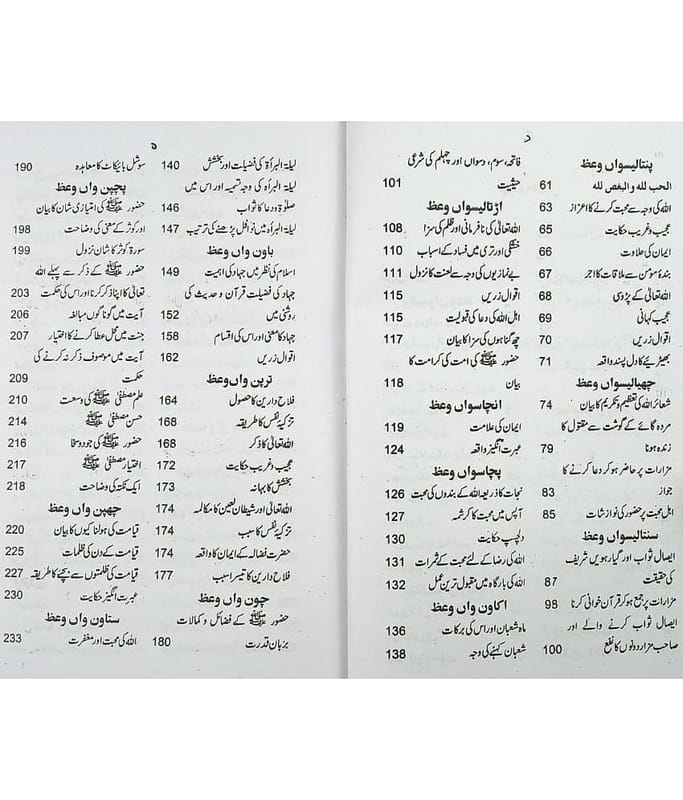 د
پنتالیسواں وعظ
الحب للہ و البغض للہ 61
اللہ کی وجہ سے محبت کرنے کا اعزاز 63
عجیب و غریب حکایت 65
ایمان کی حلاوت 66
بندۂ مؤمن سے ملاقات کا اجر 67
اللہ تعالیٰ کے پڑوسی 68
عجیب کہانی 69
اقوال زریں 70
بھیڑیئے کا دل پسند واقعہ 71
چھیالیسواں وعظ
شعائر اللہ کی تعظیم و تکریم کا بیان 74
مردہ گائے کے گوشت سے مقتول کا
زندہ ہونا 79
مزارات پر حاضر ہو کر دعا کرنے کا
جواز 83
اہل محبت پر حضور کی نوازشات 85
سنتالیسواں وعظ
ایصال ثواب اور گیارہویں شریف
کی حقیقت 87
مزارات پر جمع ہو کر قرآن خوانی کرنا 98
ایصال ثواب کرنے والے اور
صاحب مزار دونوں کا نفع 100
فاتحہ، سوم، دسواں اور چہلم کی شرعی
حیثیت 101
اڑتالیسواں وعظ
اللہ تعالیٰ کی نافرمانی اور ظلم کی سزا 108
خشکی اور تری میں فساد کے اسباب 110
بے نمازیوں کی وجہ سے لعنت کا نزول 111
اقوال زریں 115
اہل اللہ کی دعا کی قبولیت 115
چھ گناہوں کی سزا کا بیان 117
حضور ﷺ کی امت کی کرامت کا
بیان 118
انچاسواں وعظ
ایمان کی علامت 119
عبرت انگیز واقعہ 124
پچاسواں وعظ
نجات کا ذریعہ اللہ کے بندوں کی محبت 126
آپس میں محبت کا کرشمہ 127
دلچسپ حکایت 130
اللہ کی رضا کے لئے محبت کے ثمرات 131
اللہ کی بارگاہ میں مقبول ترین عمل 132
اکاون واں وعظ
ماہ شعبان اور اس کی برکات 136
شعبان کہنے کی وجہ 138
ہ
لیلۃ البرأۃ کی فضیلت اور بخشش 140
لیلۃ البرأۃ کی وجہ تسمیہ اور اس میں
صلوٰۃ و دعا کا ثواب 146
لیلۃ البرأۃ میں نوافل پڑھنے کی ترتیب 147
باون واں وعظ
اسلام کی نظر میں جہاد کی اہمیت 149
جہاد کی فضیلت قرآن و حدیث کی
روشنی میں 152
جہاد کا معنی اور اس کی اقسام 158
اقوال زریں 162
ترپن واں وعظ
فلاح دارین کا حصول 164
تزکیہ نفس کا طریقہ 168
اللہ تعالیٰ کا ذکر 168
عجیب و غریب حکایت 172
بخشش کا بہانہ 173
اللہ تعالیٰ اور شیطان لعین کا مکالمہ 174
تزکیہ نفس کا سبب 174
حضرت فضالہ کے ایمان کا واقعہ 174
فلاح دارین کا تیسرا سبب 177
چون واں وعظ
حضور ﷺ کے فضائل و کمالات
بزبان قدرت 180
سوشل بائیکاٹ کا معاہدہ 190
پچپن واں وعظ
حضور ﷺ کی امتیازی شان کا بیان
اور کوثر کے معنی کی وضاحت 198
سورۃ کوثر کا شان نزول 199
حضور ﷺ کے ذکر سے پہلے اللہ
تعالیٰ کا اپنا ذکر کرنا اور اس کی حکمت 203
آیت میں گونا گوں مبالغہ 206
جنت میں محل عطا کرنے کا اختیار 207
آیت میں موصوف ذکر نہ کرنے کی
حکمت 209
علم مصطفیٰ ﷺ کی وسعت 210
حسن مصطفیٰ ﷺ 214
حضور ﷺ کی جود و سخا 216
اختیار مصطفیٰ ﷺ 217
ایک نکتہ کی وضاحت 218
چھپن واں وعظ
قیامت کی ہولناکیوں کا بیان 220
قیامت کے دن کی ظلمات 225
قیامت کی ظلمتوں سے بچنے کا طریقہ 227
عبرت انگیز حکایت 230
ستاون واں وعظ
اللہ کی محبت اور مغفرت 233